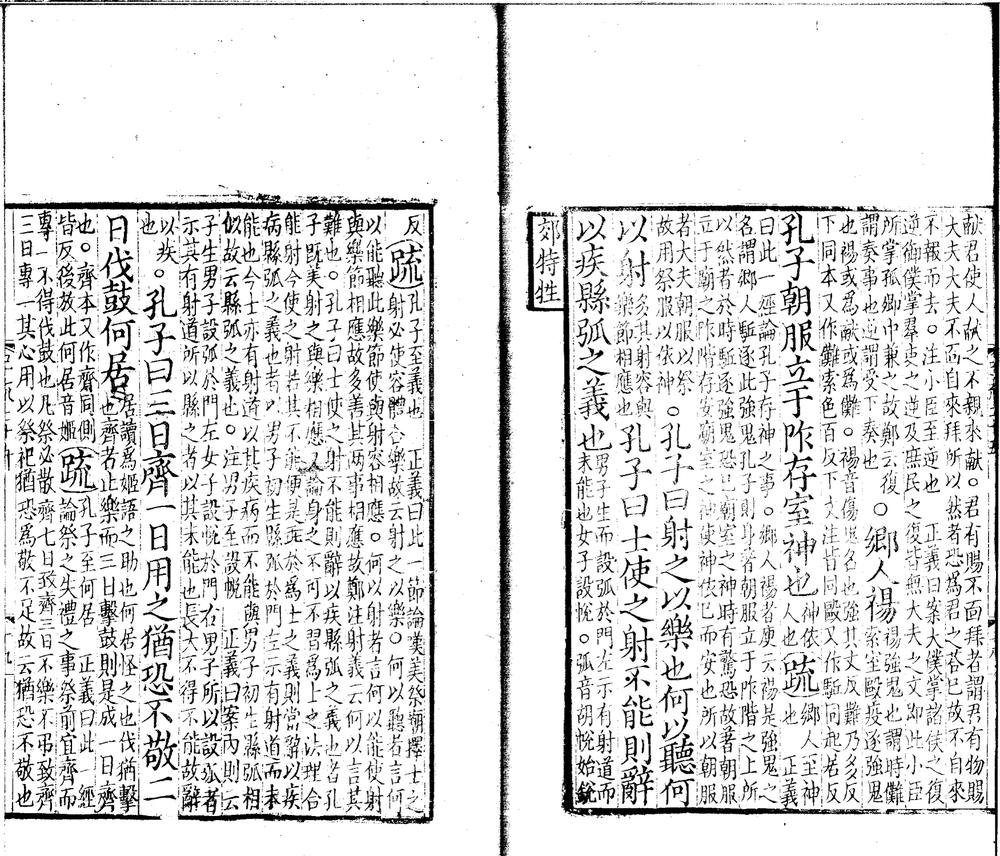 献君使人献之不親來献。君有賜不面拜者謂君有物賜
大夫大夫不面自來拜所以然者恐爲君之荅已故不自來
不報而去。注小臣至逆也 正義曰案大僕掌諸侯之復
逆御僕掌羣吏之逆及庶民之復皆無大夫之文即此小臣
所掌孤卿中兼之故鄭云復謂奏事也逆謂受下奏也 。鄉人禓 禓強鬼也謂時儺索室毆疫逐強鬼
也禓或爲献或爲儺。禓音傷鬼名也強其丈反難乃多反
下同本又作儺索色百反下文注皆同毆又作駈同起居反
孔子朝服立于阼存室神也 神依人也 疏 鄉人至神也 正義
曰此一經論孔子存神之事。鄉人禓者庾云禓是強鬼之
名謂鄉人駈逐此強鬼孔子則身著朝服立于阼階之上所
以然者於時駈逐強鬼恐已廟室之神時有驚恐故著朝服
立于廟之阼階存安廟室之神使神依已而安也所以朝服
者大夫朝服以祭故用祭服以依神 。孔子曰射之以樂也何以聽何
以射 多其射容與樂節相應也 。孔子曰士使之射不能則辭
以疾縣弧之義也 男子生而設弧於門左示有射道而未能也女子設帨。弧音胡帨始銳
郊特牲
反 疏 孔子至義也 正義曰此一節論嘆美祭朝擇士之
射必使容體合樂故云射之以樂。何以聽者言何
以能聽此樂節使與射容相應。何以射者言何以能使射
與樂節相應故多善其两事相應故鄭注射義云何以言其
難也。孔子曰士使之射不能則辭以疾縣弧之義也者孔
子旣美射之與樂相應又論身之不可不習爲士之法理合
能射今使之射若其不能不得云不能但當辭以疾
病縣弧之義也者以男子初生縣弧於門左示有射道而未
能也今士亦有射道以其疾病而不能與男子初生縣弧相
似故云縣弧之義也。注男子至設帨 正義曰案内則云
子生男子設弧於門左女子設帨於門右男子所以設弧者
示其有射道所以縣之者以其未能也長大不得不能故辭
以疾。孔子曰三日齊一日用之猶恐不敬二
也
日伐鼓何居 居讀爲姬語之助也何居怪之也伐猶擊
也齊者止樂而二日擊鼓則是成一日齊
也。齊本又作齋同側皆反後放此何居音姬 疏 孔子至何居 正義曰此一經
論祭之失禮之事祭前宜齊而
專一不得伐鼓也凡祭必散齊七日致齊三日不樂不弔致齊
三日專一其心用以祭祀猶恐爲敬不足故云猶恐不敬也